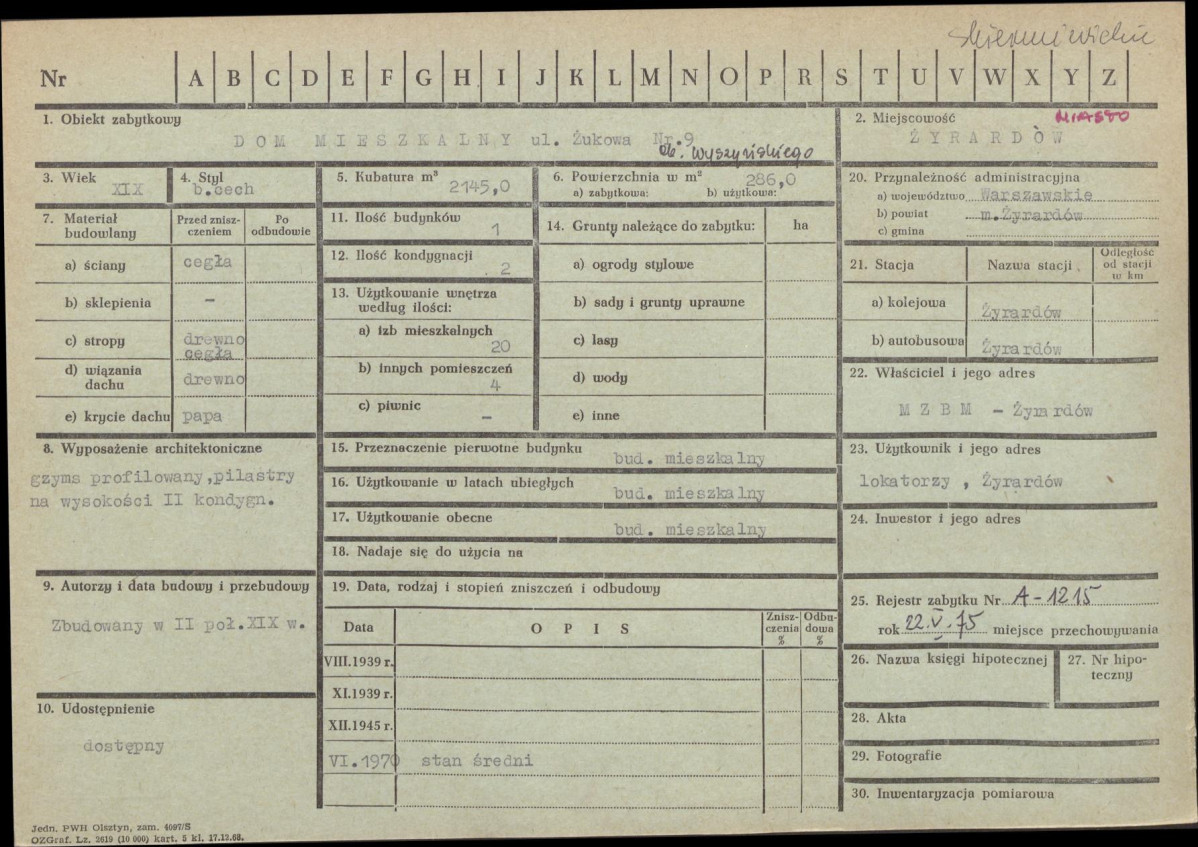 skierniewickie
Nr A B C D E F G H I J K L M N O P R S T U V W X Y Z
1. Obiekt zabytkowy
DOM MIESZKALNY ul. Żukowa Nr.9
Wyszyńskiego
2. Miejscowość
MIASTO
ŻYRARDÓW
3. Wiek
XIX
4. Styl
b.cech
5. Kubatura m³
2145,0
6. Powierzchnia w m²
286,0
a) zabytkowa: b) użytkowa:
20. Przynależność administracyjna
a) województwo Warszawskie
b) powiat m.Żyrardów
c) gmina
7. Materiał budowlany
Przed zniszczeniem
Po odbudowie
a) ściany cegła
b) sklepienia –
c) stropy drewno
cegła
d) wiązania dachu drewno
e) krycie dachu papa
11. Ilość budynków
1
12. Ilość kondygnacji
2
13. Użytkowanie wnętrza według ilości:
a) izb mieszkalnych
20
b) innych pomieszczeń
4
c) piwnic
–
14. Grunty należące do zabytku: ha
a) ogrody stylowe
b) sady i grunty uprawne
c) lasy
d) wody
e) inne
21. Stacja
Nazwa stacji
Odległość od stacji w km
a) kolejowa Żyrardów
b) autobusowa Żyrardów
22. Właściciel i jego adres
MZBM – Żyrardów
8. Wyposażenie architektoniczne
gzyms profilowany,pilastry
na wysokości II kondygn.
15. Przeznaczenie pierwotne budynku
bud. mieszkalny
16. Użytkowanie w latach ubiegłych
bud. mieszkalny
17. Użytkowanie obecne
bud. mieszkalny
18. Nadaje się do użycia na
23. Użytkownik i jego adres
lokatorzy , Żyrardów
24. Inwestor i jego adres
9. Autorzy i data budowy i przebudowy
Zbudowany w II poł.XIX w.
19. Data, rodzaj i stopień zniszczeń i odbudowy
Data OPIS Zniszczenia % Odbudowa %
VIII.1939 r.
XI.1939 r.
XII.1945 r.
VI.1970 stan średni
25. Rejestr zabytku Nr A-1215
rok 22.V.75 miejsce przechowywania
26. Nazwa księgi hipotecznej
27. Nr hipoteczny
10. Udostępnienie
dostępny
28. Akta
29. Fotografie
30. Inwentaryzacja pomiarowa
Jedn. PWH Olsztyn, zam. 4097/S
OZGraf. Lz. 2619 (10 000) kart. 5 kl. 17.12.68.